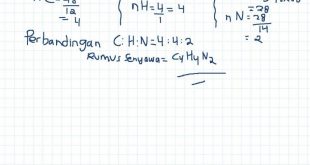 12
= 4
nH = 4/1 = 4
= 28
nN = 28/14
= 2
Perbandingan C : H : N = 4 : 4 : 2
Rumus Senyawa = C4H4N2